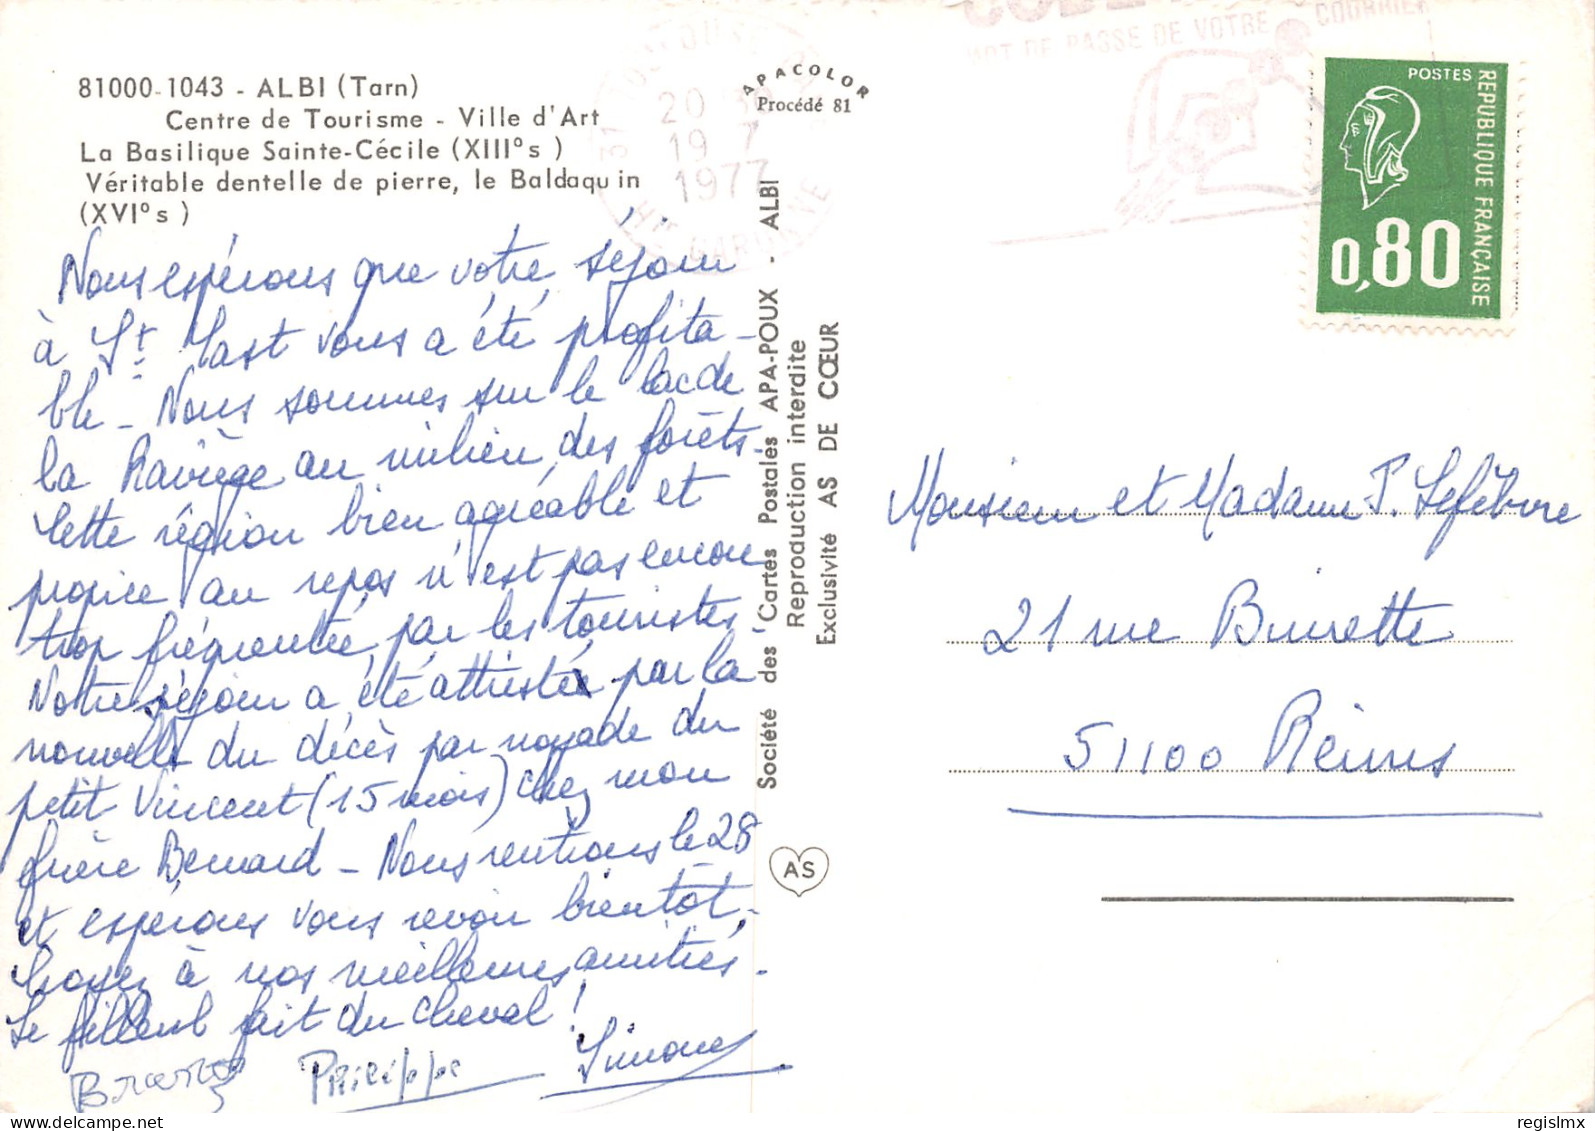 81000-1043 - ALBI (Tarn)
Centre de Tourisme - Ville d'Art
La Basilique Sainte-Cécile (XIII°s )
Véritable dentelle de pierre, le Baldaquin
(XVI°s )
Nous espérons que votre séjour
à St. Mast vous a été profita-
ble - Nous sommes sur le lac de
la Raviège au milieu des forêts.
Cette région bien agréable et
propice au repos n'est pas encore
trop fréquentée par les touristes
Notre séjour a été attristé par la
nouvelle du décès par noyade du
petit Vincent (15 mois) chez mon
frère Bernard - Nous rentrons le 28
et espérons vous revoir bientôt.
Croyez à nos meilleures amitiés.
Le filleul fait du cheval !
Bruno Philippe Simone
APACOLOR
Procédé 81
Société des Cartes Postales APA-POUX - ALBI
Reproduction interdite
Exclusivité AS DE CŒUR
AS
31 TOULOUSE
20
19 7
1977
HTE GARONNE
CODE
MOT DE PASSE DE VOTRE COURRIER
POSTES
REPUBLIQUE FRANÇAISE
0,80
Monsieur et Madame P. Lefèbvre
21 rue Buirette
51100 Reims
delcampe.net
regislmx